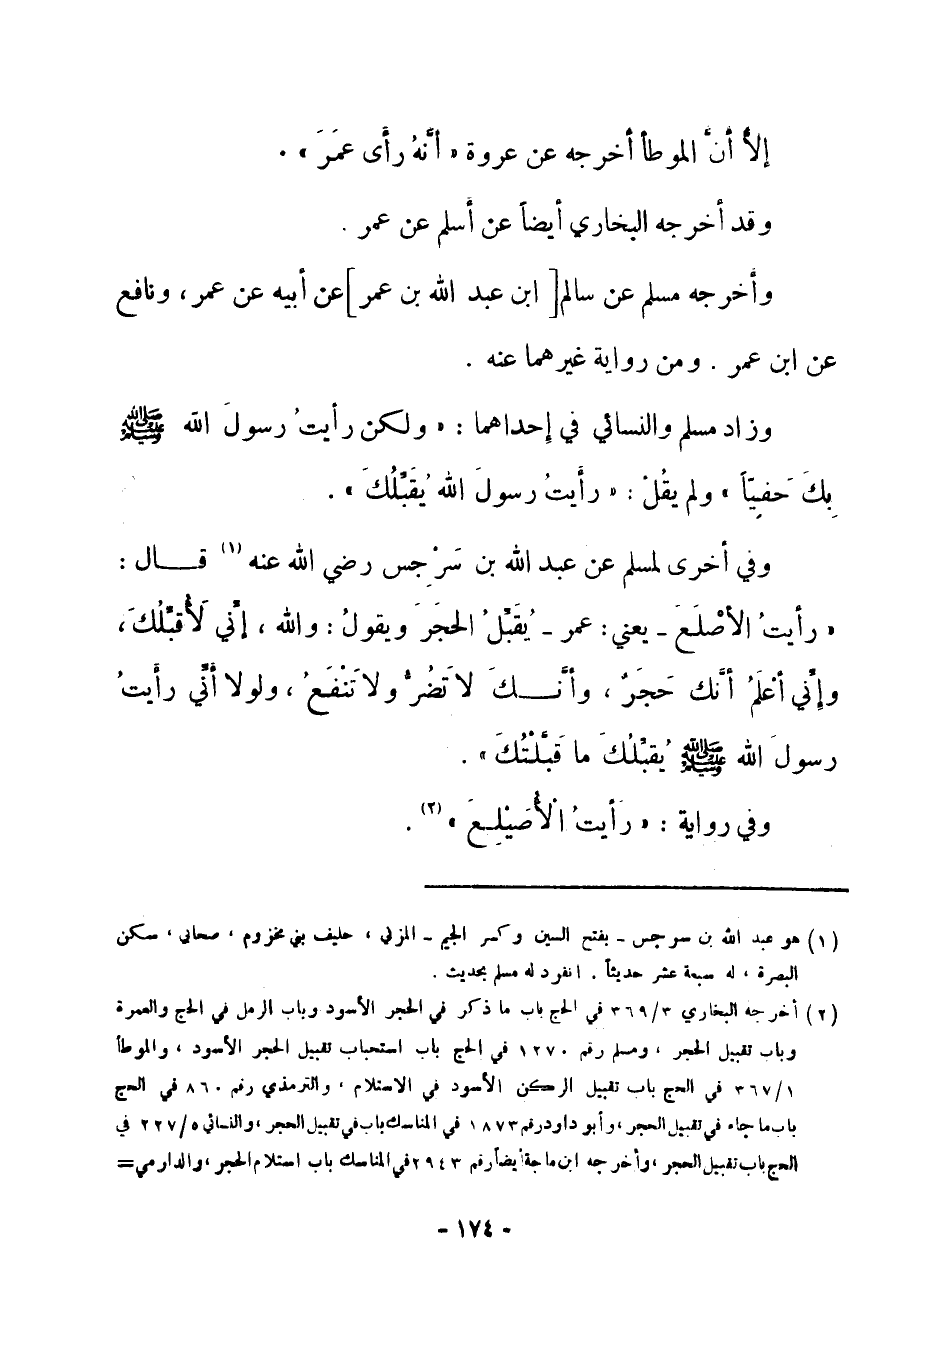 إلاَّ أنَّ الموطأ أخرجه عن عروة « أنَّهُ رأَى عمَرَ » .
وقد أخرجه البخاري أيضاً عن أسلم عن عمر .
وأخرجه مسلم عن سالم [ ابن عبد الله بن عمر ] عن أبيه عن عمر ، ونافع
عن ابن عمر . ومن رواية غيرهما عنه .
وزاد مسلم والنسائي في إحداهما : « ولكن رأيتُ رسولَ الله ﷺ
بِكَ حَفِيّاً » ولم يقُلْ : « رأيتُ رسولَ الله يُقَبِّلُكَ » .
وفي أخرى لمسلم عن عبد الله بن سَرْجِس رضي الله عنه (١) قـــال :
« رأيتُ الأصْلَعَ ـ يعني : عمر ـ يُقَبِّلُ الحجَرَ ويقولُ : والله ، إنِّي لَأُقبِّلُكَ ،
وإنِّي أعْلَمُ أنَّك حَجَرٌ ، وأنَّـــكَ لا تَضُرُّ ولا تَنْفَعُ ، ولولا أنِّي رأيتُ
رسولَ الله ﷺ يُقبِّلُكَ ما قَبَّلْتُكَ » .
وفي رواية : « رَأيتُ الْأُصَيْلِعَ » (٢) .
(١) هو عبد الله بن سرجس ـ بفتح السين وكسر الجيم ـ المزني ، حليف بني مخزوم ، صحابي ، سكن
البصرة ، له سبعة عشر حديثاً . انفرد له مسلم بحديث .
(٢) أخرجه البخاري ٣/٣٦٩ في الحج باب ما ذكر في الحجر الأسود وباب الرمل في الحج والعمرة
وباب تقبيل الحجر ، ومسلم رقم ١٢٧٠ في الحج باب استحباب تقبيل الحجر الأسود ، والموطأ
١/٣٦٧ في الحج باب تقبيل الركن الأسود في الاستلام ، والترمذي رقم ٨٦٠ في الحج
باب ما جاء في تقبيل الحجر ، وأبو داود رقم ١٨٧٣ في المناسك باب في تقبيل الحجر ، والنسائي ٥/٢٢٧ في
الحج باب تقبيل الحجر ، وأخرجه ابن ماجة أيضاً رقم ٢٩٤٣ في المناسك باب استلام الحجر ، والدارمي =
- ١٧٤ -